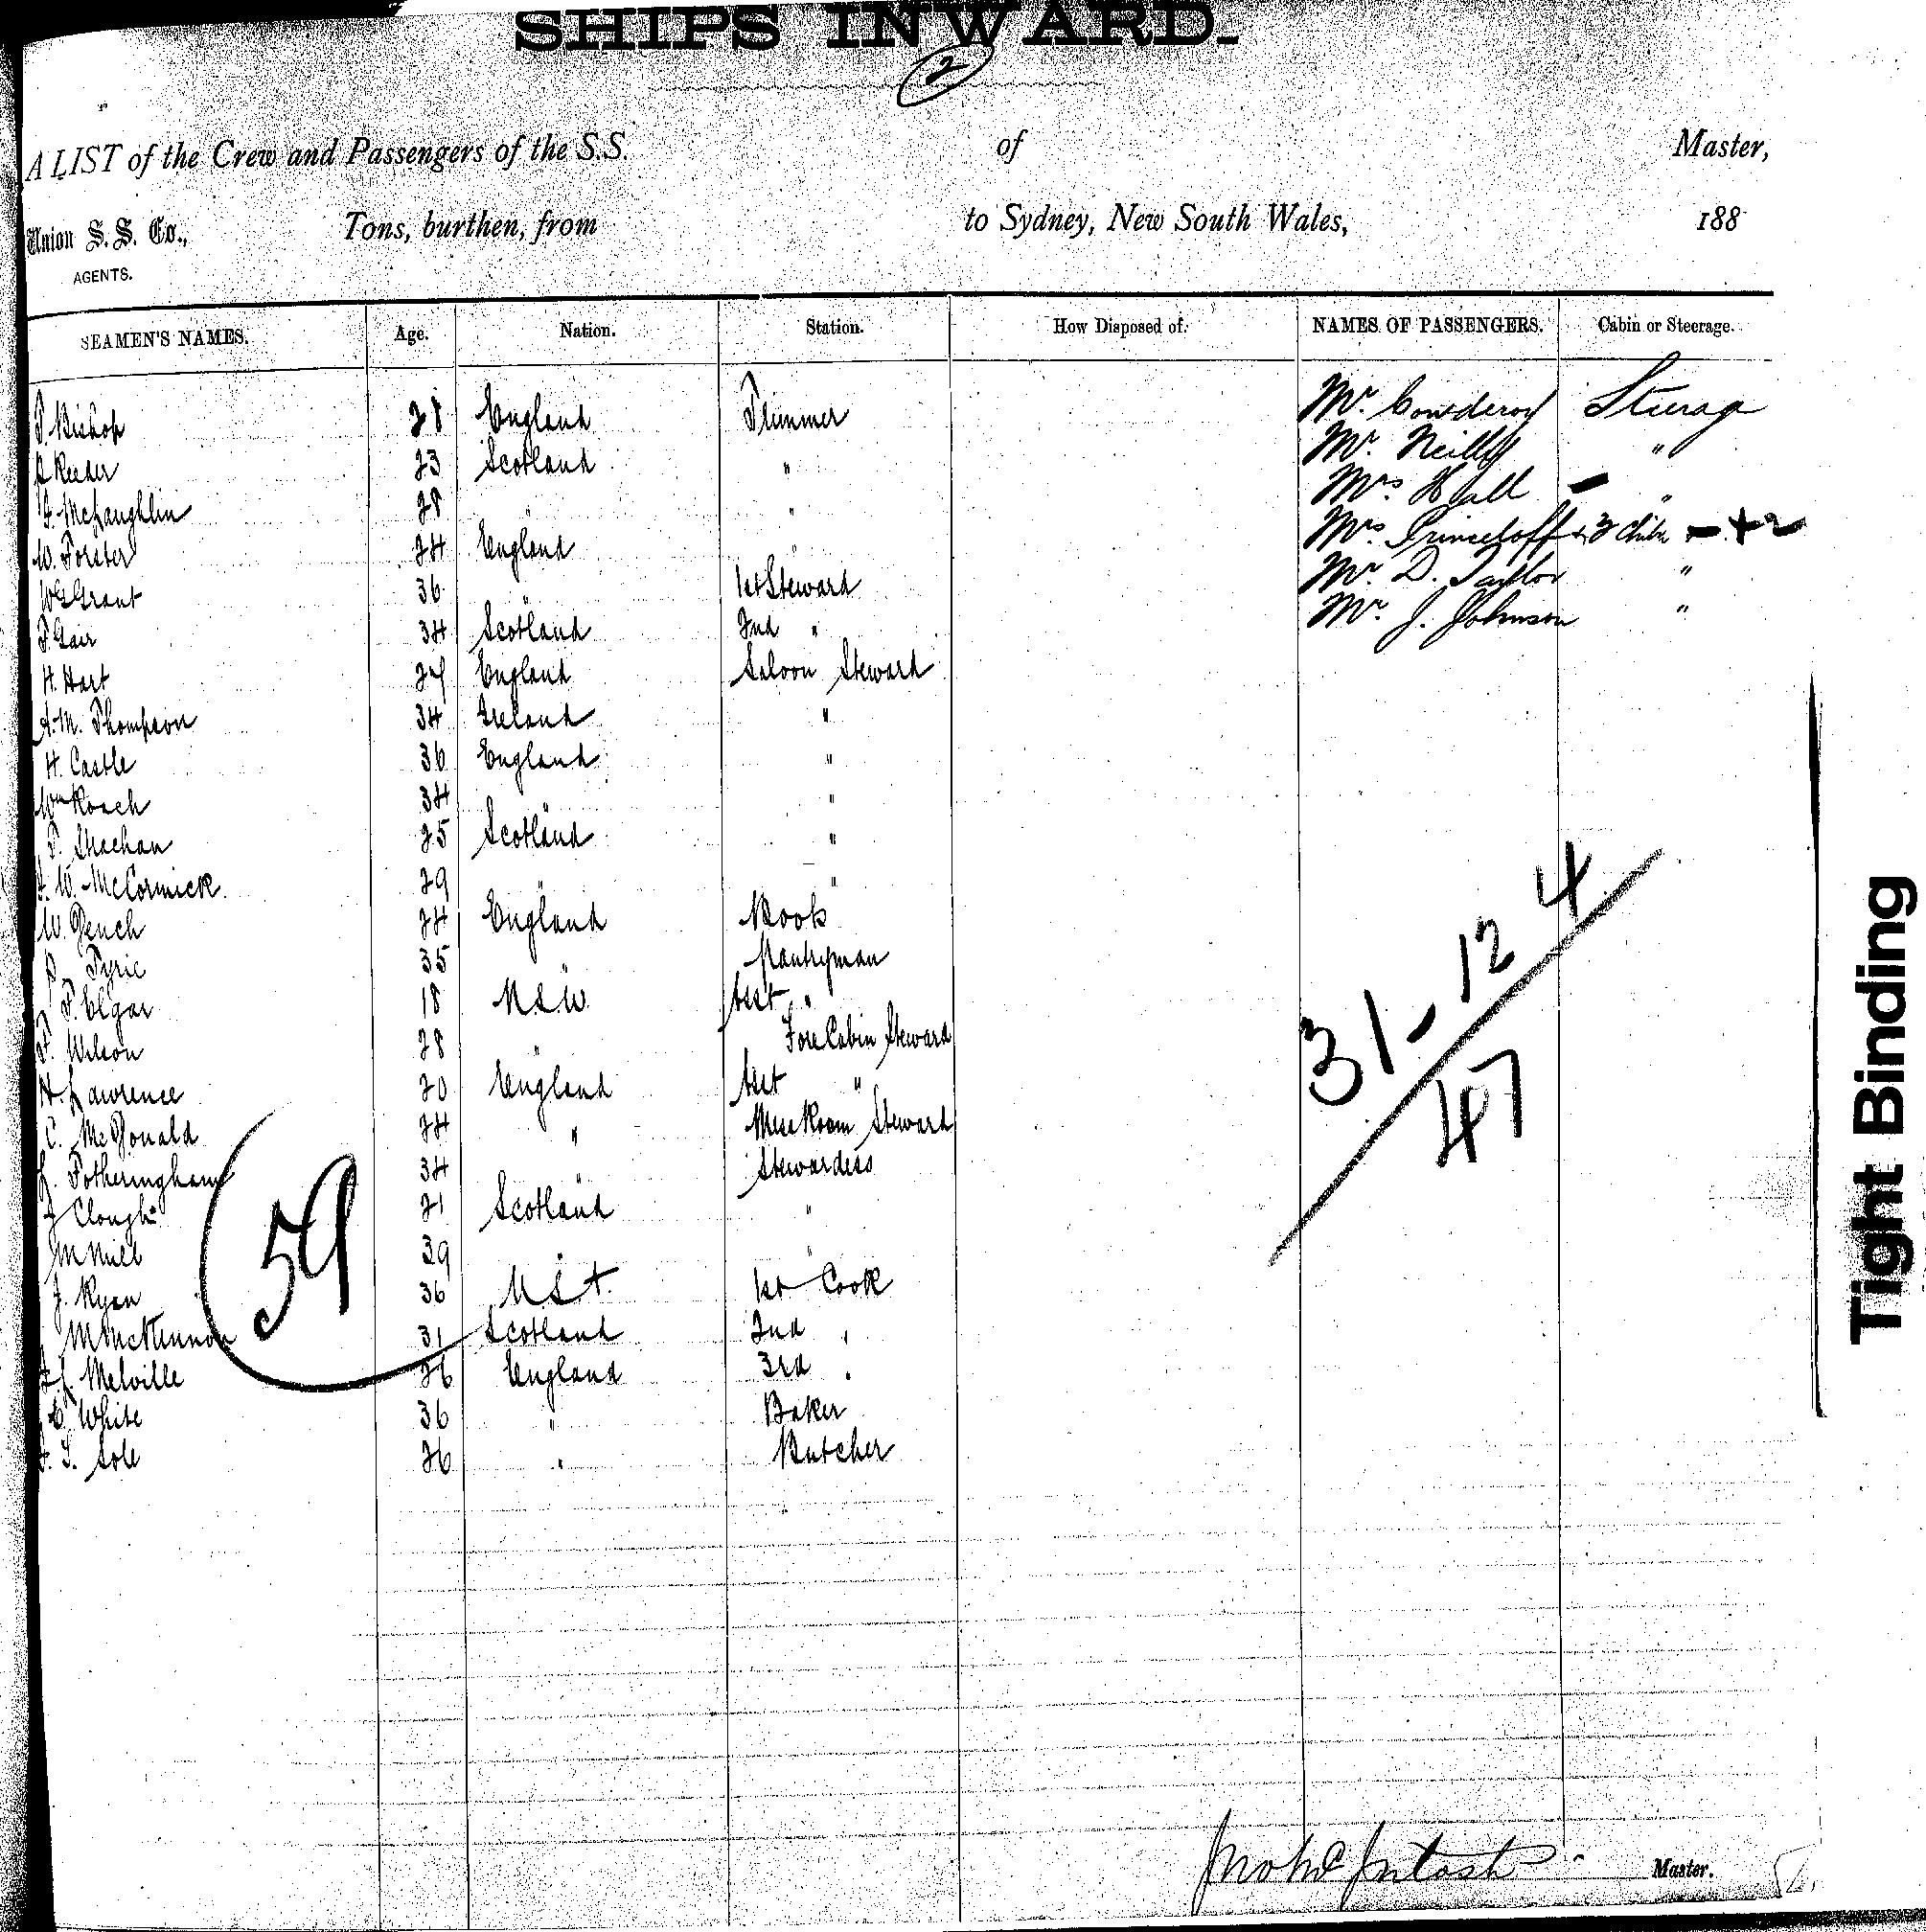 SHIPS INWARD.
2
A LIST of the Crew and Passengers of the S.S. of Master,
Union S. S. Co., Tons, burthen, from to Sydney, New South Wales, 188
AGENTS.
SEAMEN'S NAMES. Age. Nation. Station. How Disposed of. NAMES OF PASSENGERS. Cabin or Steerage.
T. Bishop 28 England Trimmer Mr. Cowderoy Steerage
Reeder 23 Scotland " Mr. Neilly "
McLaughlin 28 " " Mrs Hall "
W. Forster 24 England " Mrs. & 3 - + 2
Wm Grant 36 " 1st Steward Mr. D. Taylor "
T. Gair 34 Scotland 2nd " Mr. J. Johnson "
H. Hart 27 England Saloon Steward
A. M. Thompson 34 Ireland "
H. Castle 36 England "
Wm Roach 34 " "
Strachan 25 Scotland "
W. McCormick 29 " "
W. Gench 24 England
Pyrie 35 " Pantryman
T. Elgar 18 N.S.W. Asst "
F. Wilson 28 " Fore Cabin Steward
H. Lawrence 20 England Asst "
C. McDonald 24 " Mess Room Steward
Fotheringham 34 " Stewardess
J Clough 21 Scotland "
M Neil 39 " "
J. Ryan 36 1st Cook
M McKinnon 31 Scotland 2nd "
Melville 26 England 3rd "
White 36 " Baker
S. Sole 26 " Butcher
59
31-12 4
47
Jno McIntosh Master.
Tight Binding